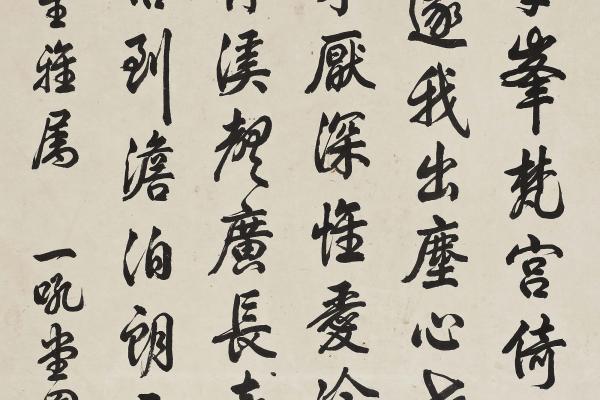 峯梵宮倚
遂我出塵心
厭深惟愛
溪聲廣長
到澹泊朗
雅屬
一吼堂